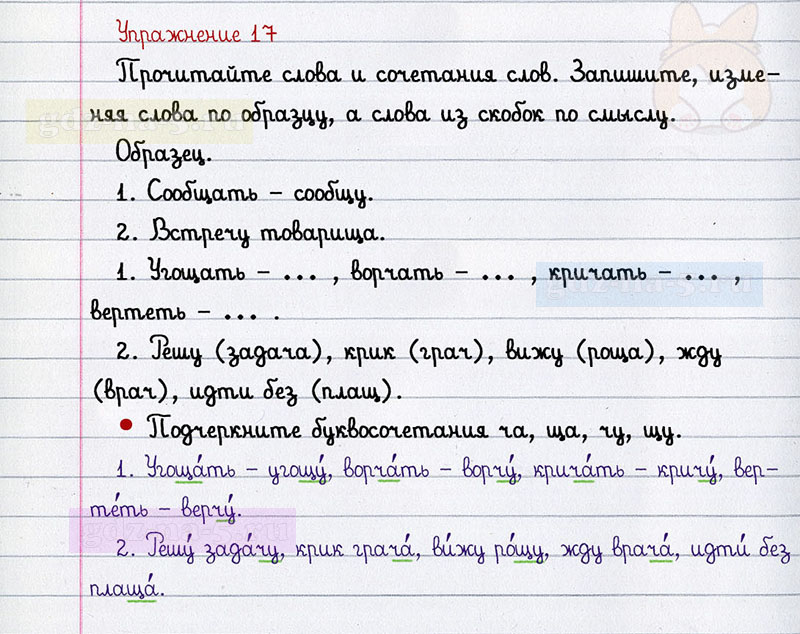 Упражнение 17
Прочитайте слова и сочетания слов. Запишите, изме-
няя слова по образцу, а слова из скобок по смыслу.
gdz-na-5.ru
Образец.
1. Сообщать – сообщу.
2. Встречу товарища.
1. Угощать – ... , ворчать – ... , кричать – ... ,
gdz-na-5.ru
вертеть – ... .
2. Решу (задача), крик (грач), вижу (роща), жду
(врач), идти без (плащ).
• Подчеркните буквосочетания ча, ща, чу, щу.
1. Угоща́ть – угощу́, ворча́ть – ворчу́, крича́ть – кричу́, вер-
те́ть – верчу́.
gdz-na-5.ru
2. Решу́ зада́чу, крик грача́, ви́жу ро́щу, жду врача́, идти́ без
плаща́.